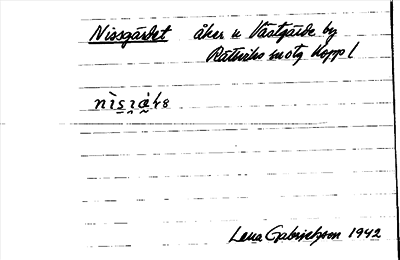 Nissgärdet åker u Västgärde by
Rättviks sn otg Kopp l
Lena Gabrielsson 1942